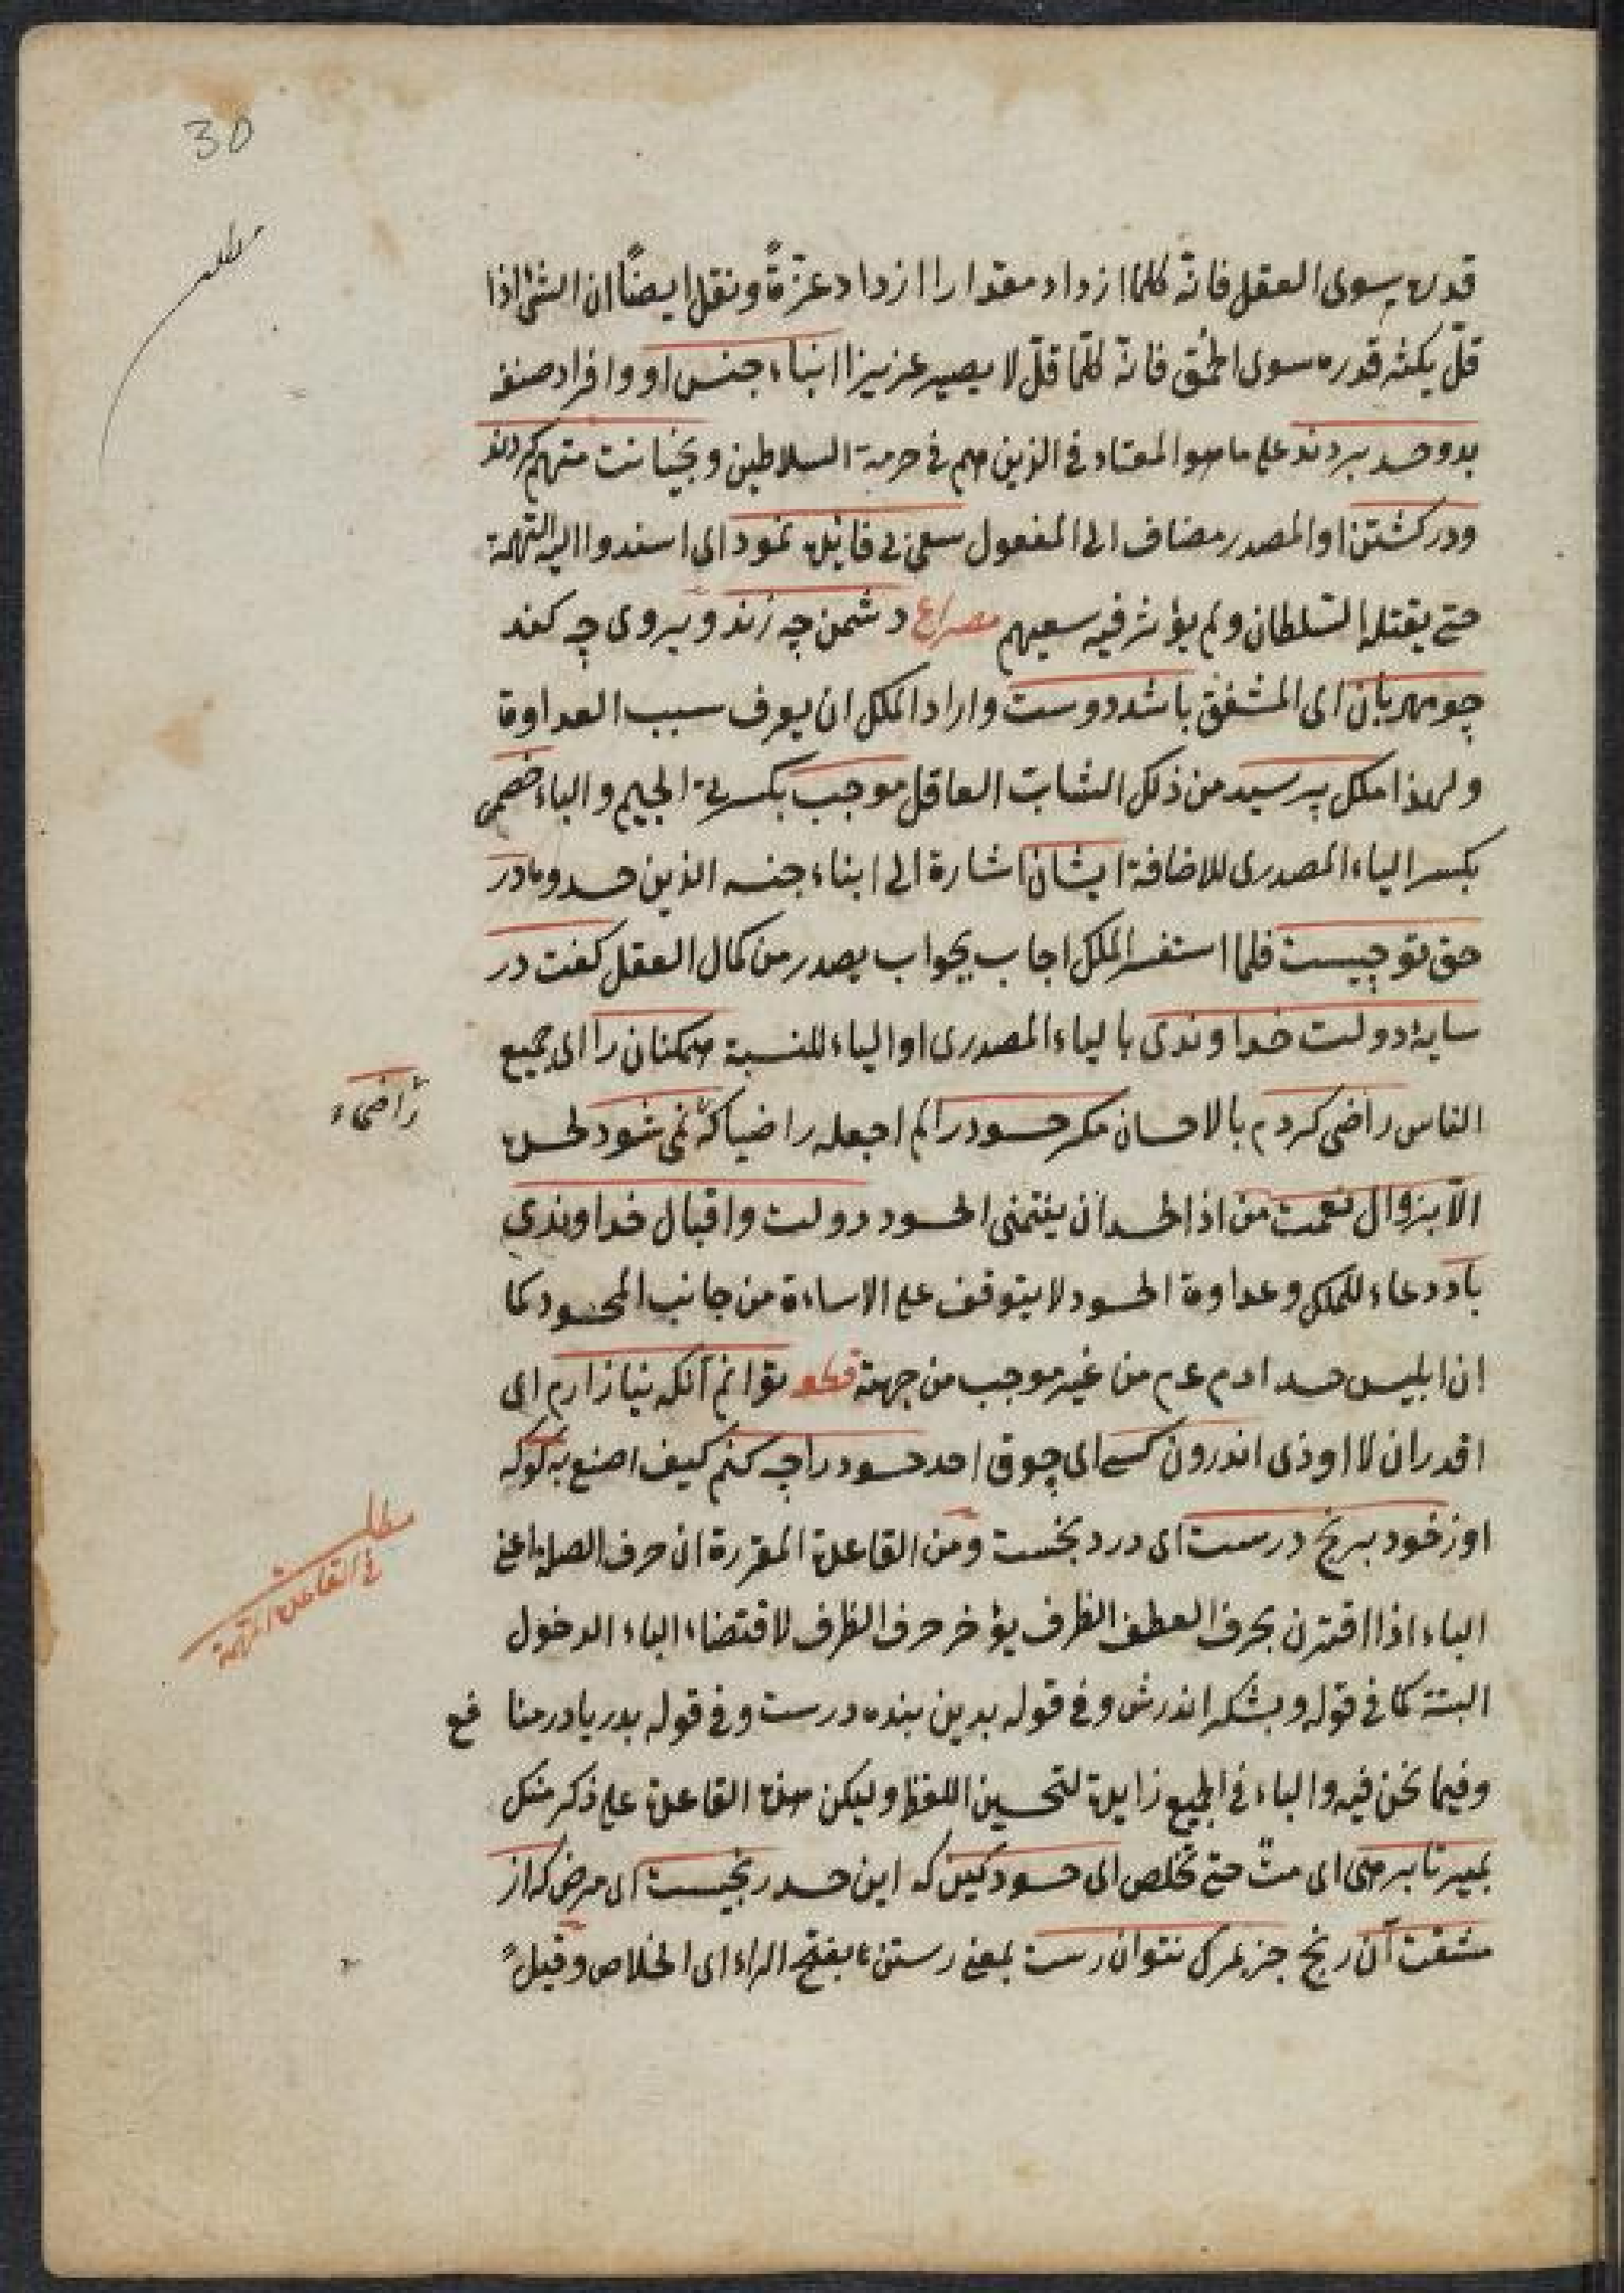 30
مطلب
قدره سوى العقل فانه كلما ازداد مقدارا ازداد عزةً ونقل ايضاً ان الشئ اذا
قل يكثر قدره سوى الحمق فانه كلما قل لا يصير عزيزا ابناء جنس او وافراد صنف
بدو حسد بردند على ما هو المعتاد فى الذين هم فى حرمة السلاطين وبخيانت متهم كردند
ودر كشتن او المصدر مضاف الى المفعول سعى بى فايده نمود اى اسندوا اليه التهمة
حتى يقتله السلطان ولم يؤثر فيه سعيهم مصراع دشمن چه زند وبروى چه كند
چو مهربان اى المشفق باشد دوست واراد الملك ان يعرف سبب العداوة
ولهذا ملك پرسيد من ذلك الشاب العاقل موجب بكسرة الجيم والباء خصمى
بكسر الياء المصدرى للاضافة ايشان اشارة الى ابناء جنسه الذين حسدوه در
حق تو چيست فلما استفسر الملك اجاب بجواب يصدر من كمال العقل كفت در
سايه دولت خداوندى بالياء المصدرى او الياء للنسبة همكنان را اى جميع
الناس راضى كردم بالاحسان مكر حسود را لم اجعله راضيا كه نمى شود لحسده
راضى
الا بزوال نعمت من اذ الحسد ان يتمنى الحسود دولت واقبال خداوندى
باد دعاء للملك وعداوة الحسود لا يتوقف على الاساءة من جانب المحسود كما
ان ابليس حسد ادم عم من غير موجب من جهته قطعه توانم آنكه نيازارم اى
اقدر ان لا اوذى اندرون كسى اى جوف احد حسود را چه كنم كيف اصنع به كو كه
او ز خود برنج درست اى درد بخست ومن القاعدة المقررة ان حرف الصلة اعنى
مطلب
فى القاعدة المهمة
الباء اذا اقترن بحرف العطف الظرف يؤخر حرف الظرف لاقتضاء الباء الدخول
البتة كما فى قوله وبشكر اندرش وفى قوله بدين بنده درست وفى قوله بدريا در منافع
وفيما نحن فيه والباء فى الجميع زايدة لتحسين اللفظ وليكن هذه القاعدة على ذكر منك
بمير تا برهى اى مت حتى تخلص اى حسود كين كه اين حسد رنجيست اى مرض كه از
مشقت آن رنج جز بمرك نتوان رست بمعنى رستن بفتح الراء اى الخلاص وقيل